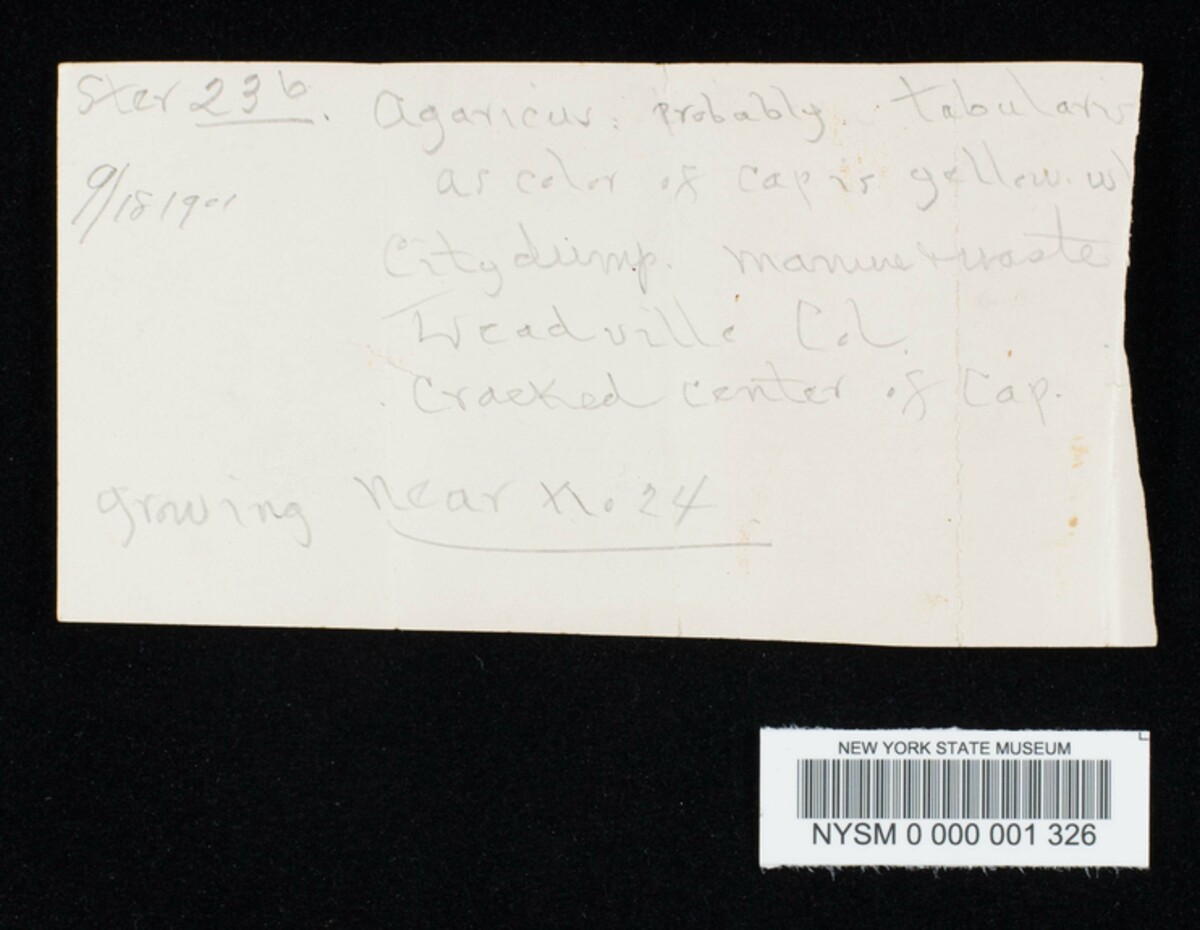 Ster 23 b. Agaricus: probably tabularis
9/18 1901
as color of cap is yellow. w
City dump. manure & waste
Leadville Col.
Cracked center of Cap.
growing Near No 24
NEW YORK STATE MUSEUM
NYSM 0 000 001 326